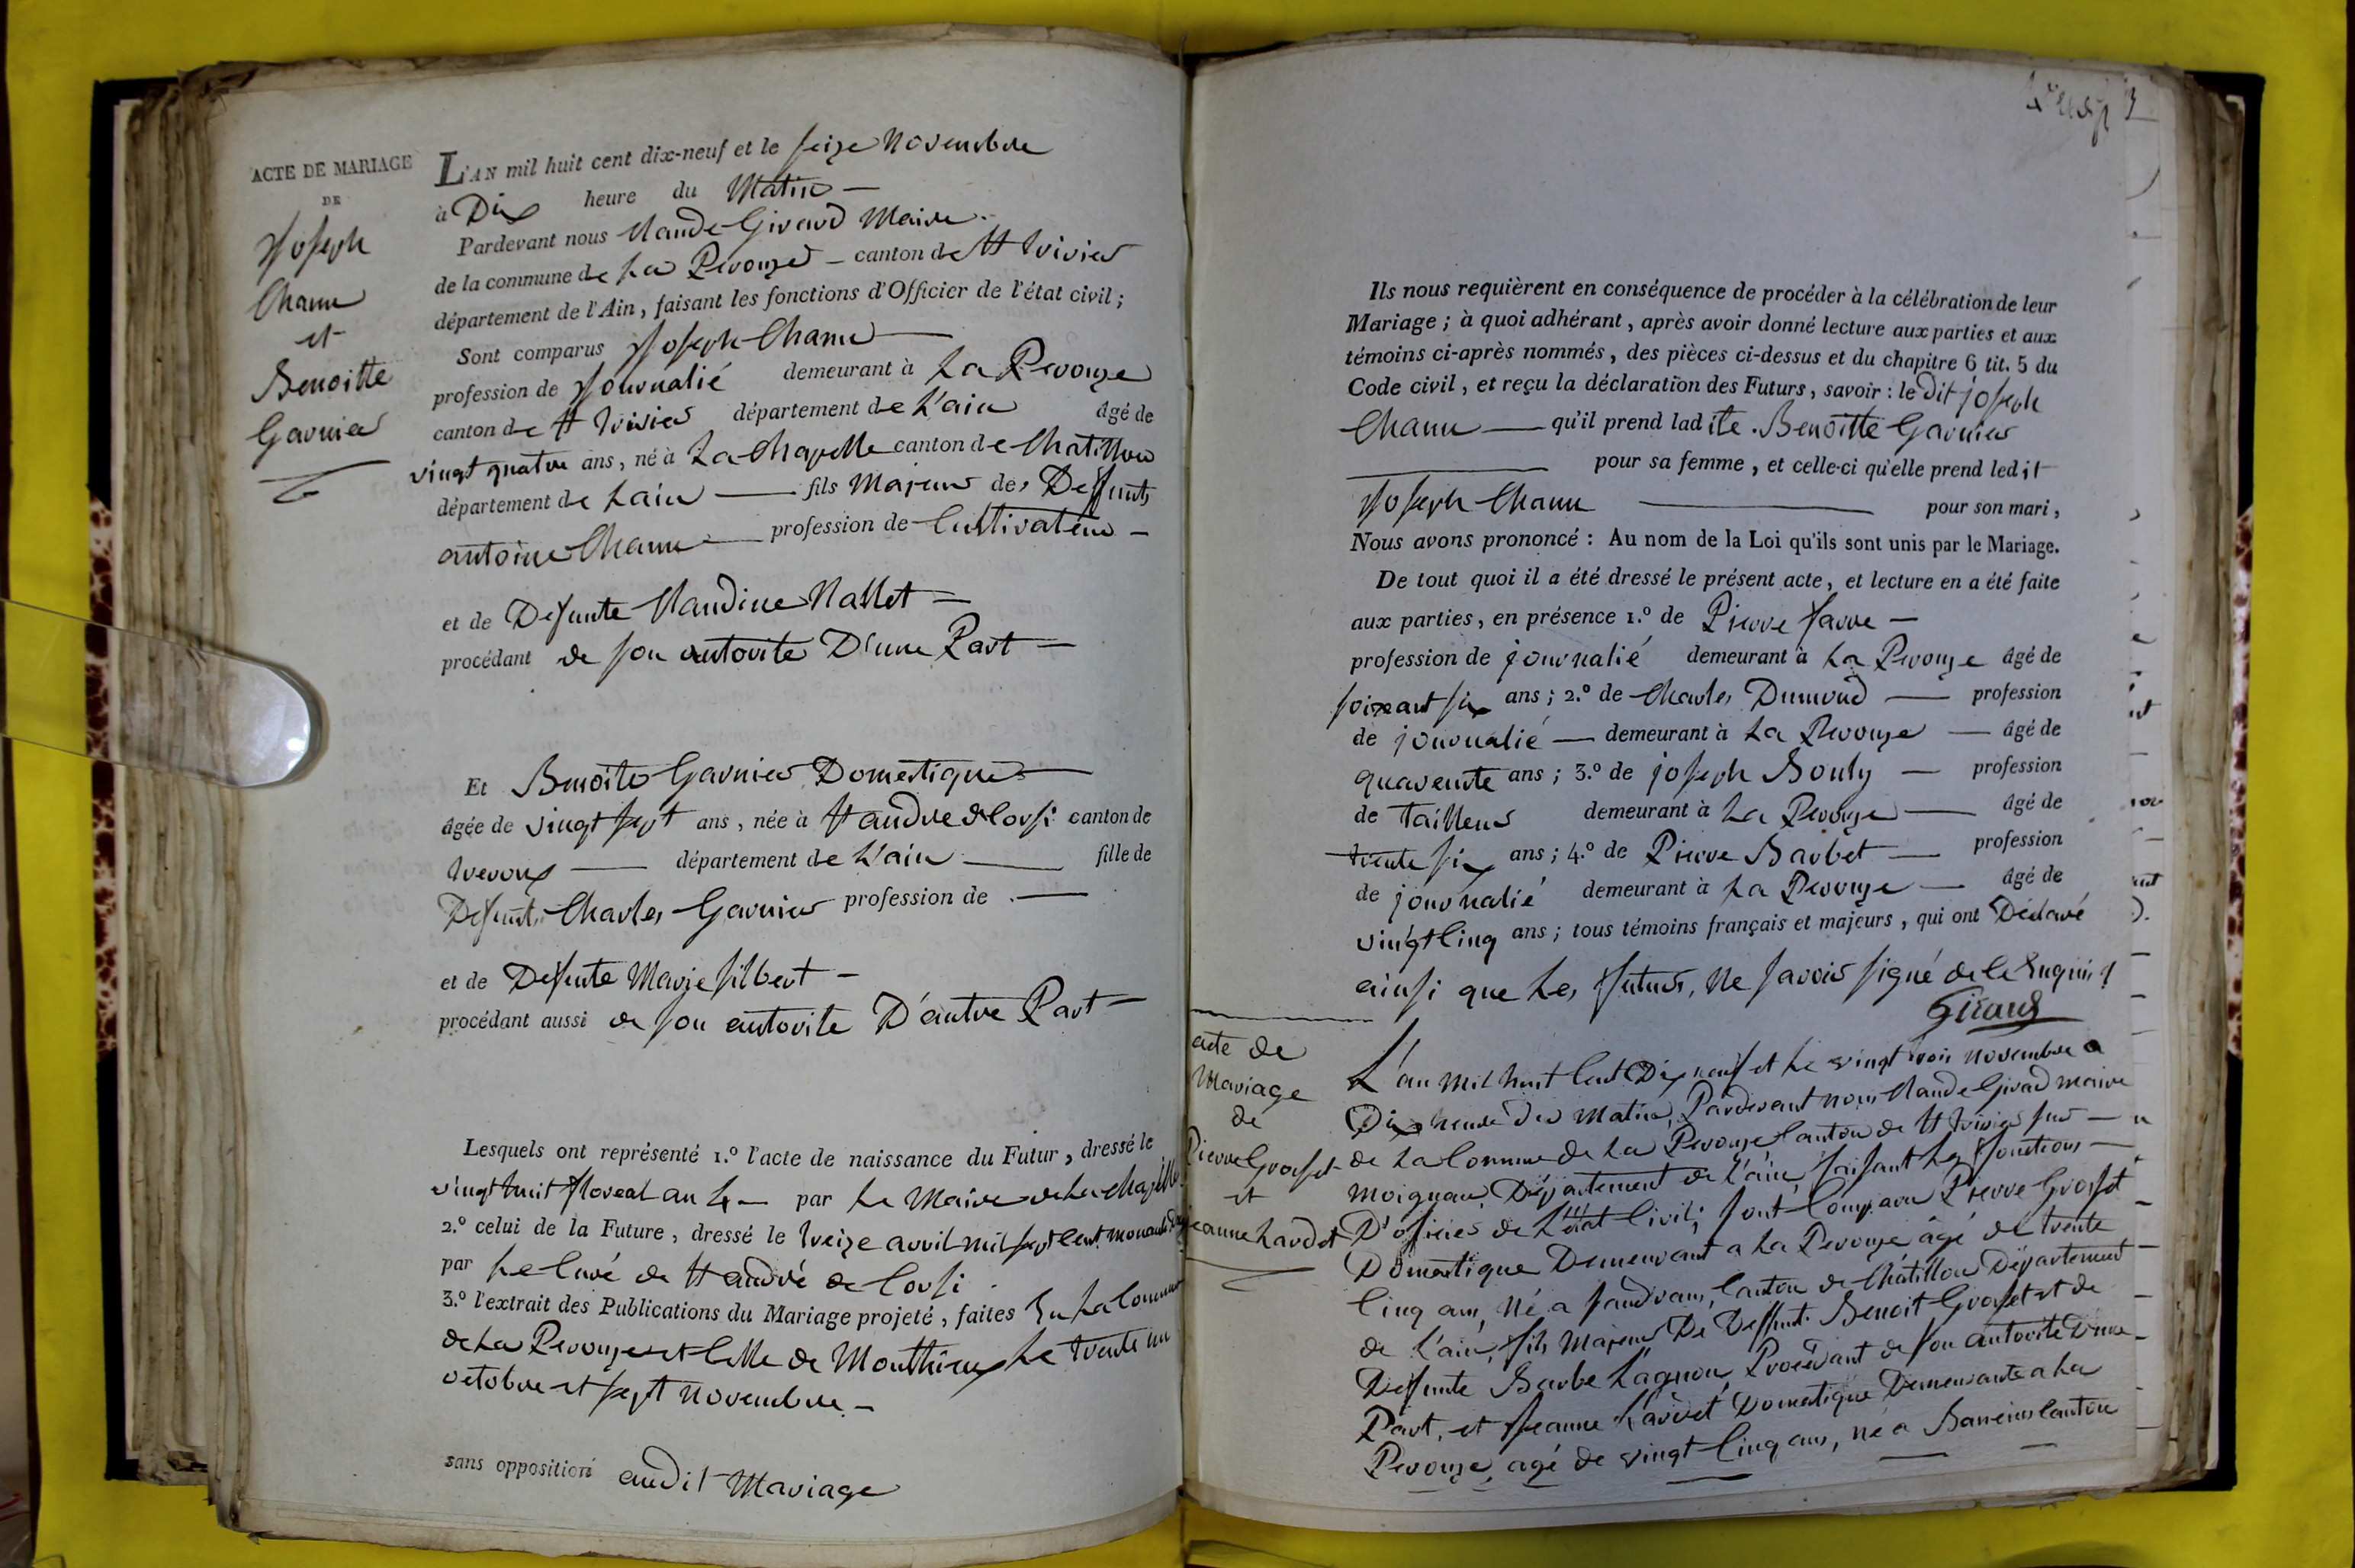 ACTE DE MARIAGE
DE
Joseph
Chanu
et
Benoitte
Garnier
L'AN mil huit cent dix-neuf et le seize Novembre
à Dix heure du Matin —
Pardevant nous Claude Giraud Maire
de la commune de La Perouze — canton de St trivier
département de l'Ain, faisant les fonctions d'Officier de l'état civil ;
Sont comparus Joseph Chanu —
profession de Journalié demeurant à La Perouze
canton de St trivier département de L'ain âgé de
vingt quatre ans, né à La Chapelle canton de Chatillon
département de Lain — fils Majeur de, Deffunts
antoine Chanu — profession de Cultivateur —
et de Defunte Claudine Nallet —
procédant de son autorite D'une Part —
Et Benoite Garnier Domestique —
âgée de vingt sept ans, née à St andre de Corsi canton de
trevoux — département de L'ain — fille de
Defunt, Charles Garnier profession de —
et de Defunte Marie silbert —
procédant aussi de son autorite D'autre Part —
Lesquels ont représenté 1.º l'acte de naissance du Futur, dressé le
vingt huit floreal an 4 — par Le Maire de La Chapelle
2.º celui de la Future, dressé le treize avril mil sept Cent
par Le Curé de St andré de Corsi
3.º l'extrait des Publications du Mariage projeté, faites En La Commune
de La Perouze et Celle de Monthieux Le trente un
octobre et sept novembre —
sans opposition audit Mariage
Ils nous requièrent en conséquence de procéder à la célébration de leur
Mariage ; à quoi adhérant, après avoir donné lecture aux parties et aux
témoins ci-après nommés, des pièces ci-dessus et du chapitre 6 tit. 5 du
Code civil, et reçu la déclaration des Futurs, savoir : le Dit joseph
Chanu — qu'il prend ladite Benoitte Garnier
— pour sa femme, et celle-ci qu'elle prend ledit
Joseph Chanu — pour son mari,
Nous avons prononcé : Au nom de la Loi qu'ils sont unis par le Mariage.
De tout quoi il a été dressé le présent acte, et lecture en a été faite
aux parties, en présence 1.º de Pierre favre —
profession de journalié demeurant à La Perouze âgé de
soixant six ans ; 2.º de Charles Dumond — profession
de journalié — demeurant à La Perouze — âgé de
quarente ans ; 3.º de joseph Bouly — profession
de tailleur demeurant à La Perouze — âgé de
trente six ans ; 4.º de Pierre Barbet — profession
de journalié demeurant à La Perouze — âgé de
vingt Cinq ans ; tous témoins français et majeurs, qui ont Déclaré
ainsi que Les futurs, Ne savoir signé de ce Enquis /
Giraud
acte de
Mariage
de
Pierre Grosset
et
jeanne Lardet
L'an mil huit Cent Dix neuf et Le vingt trois novembre a
Dix heure du Matin, Pardevant nous Claude Girad maire
de La Commune de La Perouze Canton de St trivier sur —
moignan, Département de L'ain, faisant Les fonctions —
D'oficier de L'état Civil; sont Comparu Pierre Grosset
Domestique Demeurant a La Perouze âgé de trente
Cinq ans, Né a sandrans, Canton de Châtillon Département
de L'ain, fils Majeur De Deffunt Benoit Grosset et de
Defunte Barbe Lagnon, Procédant de son autorite D'une
Part, et Jeanne Lardet Domestique Demeurante a La
Perouze, agé de vingt Cinq ans, né a Baneins Canton